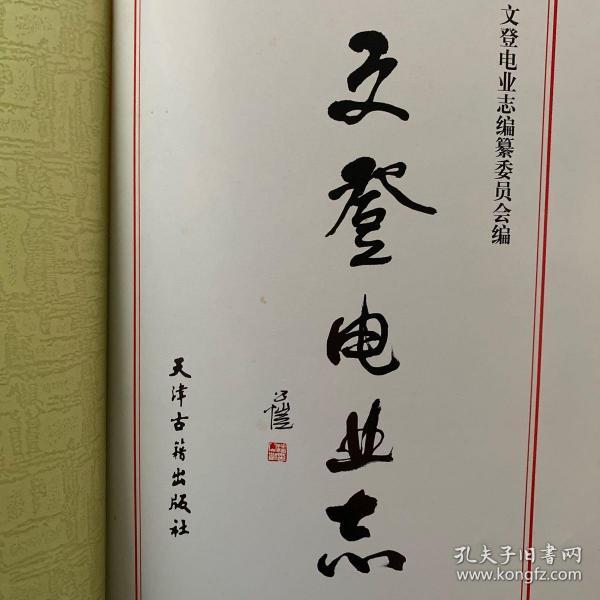 文登电业志编纂委员会编
文登电业志
天津古籍出版社
孔夫子旧书网
www.kongfz.com